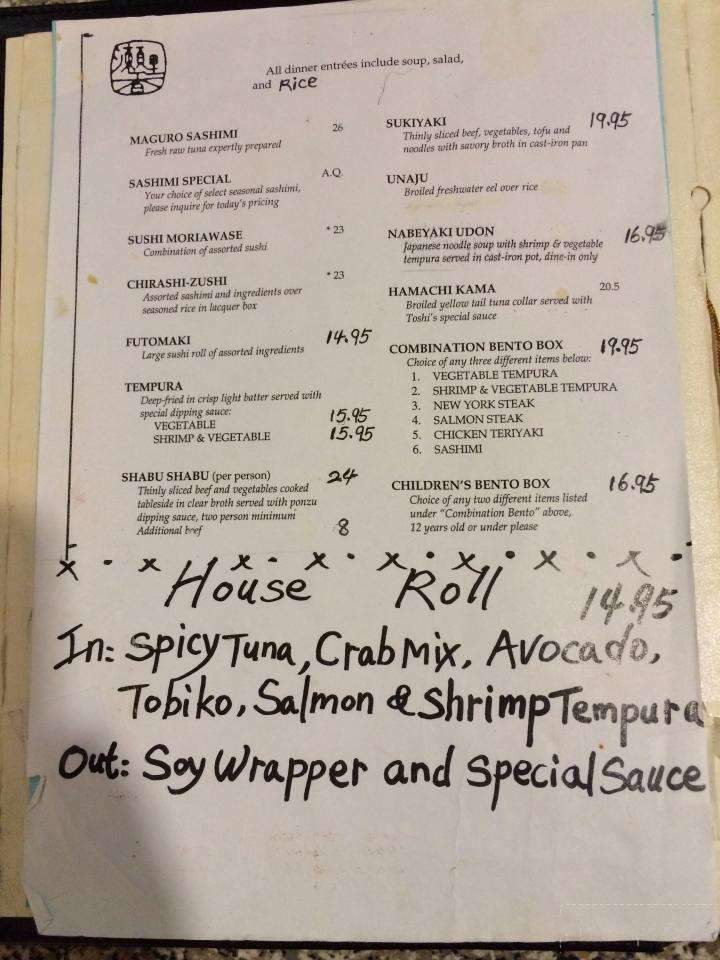 All dinner entrées include soup, salad,
and Rice
MAGURO SASHIMI 26
Fresh raw tuna expertly prepared
SASHIMI SPECIAL A.Q.
Your choice of select seasonal sashimi,
please inquire for today's pricing
SUSHI MORIAWASE * 23
Combination of assorted sushi
CHIRASHI-ZUSHI * 23
Assorted sashimi and ingredients over
seasoned rice in lacquer box
FUTOMAKI 14.95
Large sushi roll of assorted ingredients
TEMPURA
Deep-fried in crisp light batter served with
special dipping sauce:
VEGETABLE 15.95
SHRIMP & VEGETABLE 15.95
SHABU SHABU (per person) 24
Thinly sliced beef and vegetables cooked
tableside in clear broth served with ponzu
dipping sauce, two person minimum
Additional beef 8
SUKIYAKI 19.95
Thinly sliced beef, vegetables, tofu and
noodles with savory broth in cast-iron pan
UNAJU
Broiled freshwater eel over rice
NABEYAKI UDON 16.95
Japanese noodle soup with shrimp & vegetable
tempura served in cast-iron pot, dine-in only
HAMACHI KAMA 20.5
Broiled yellow tail tuna collar served with
Toshi's special sauce
COMBINATION BENTO BOX 19.95
Choice of any three different items below:
1. VEGETABLE TEMPURA
2. SHRIMP & VEGETABLE TEMPURA
3. NEW YORK STEAK
4. SALMON STEAK
5. CHICKEN TERIYAKI
6. SASHIMI
CHILDREN'S BENTO BOX 16.95
Choice of any two different items listed
under "Combination Bento" above,
12 years old or under please
x · x x · x · x · x · x · x ·
House Roll 14.95
In: Spicy Tuna, Crab Mix, Avocado,
Tobiko, Salmon & Shrimp Tempura
Out: Soy Wrapper and Special Sauce